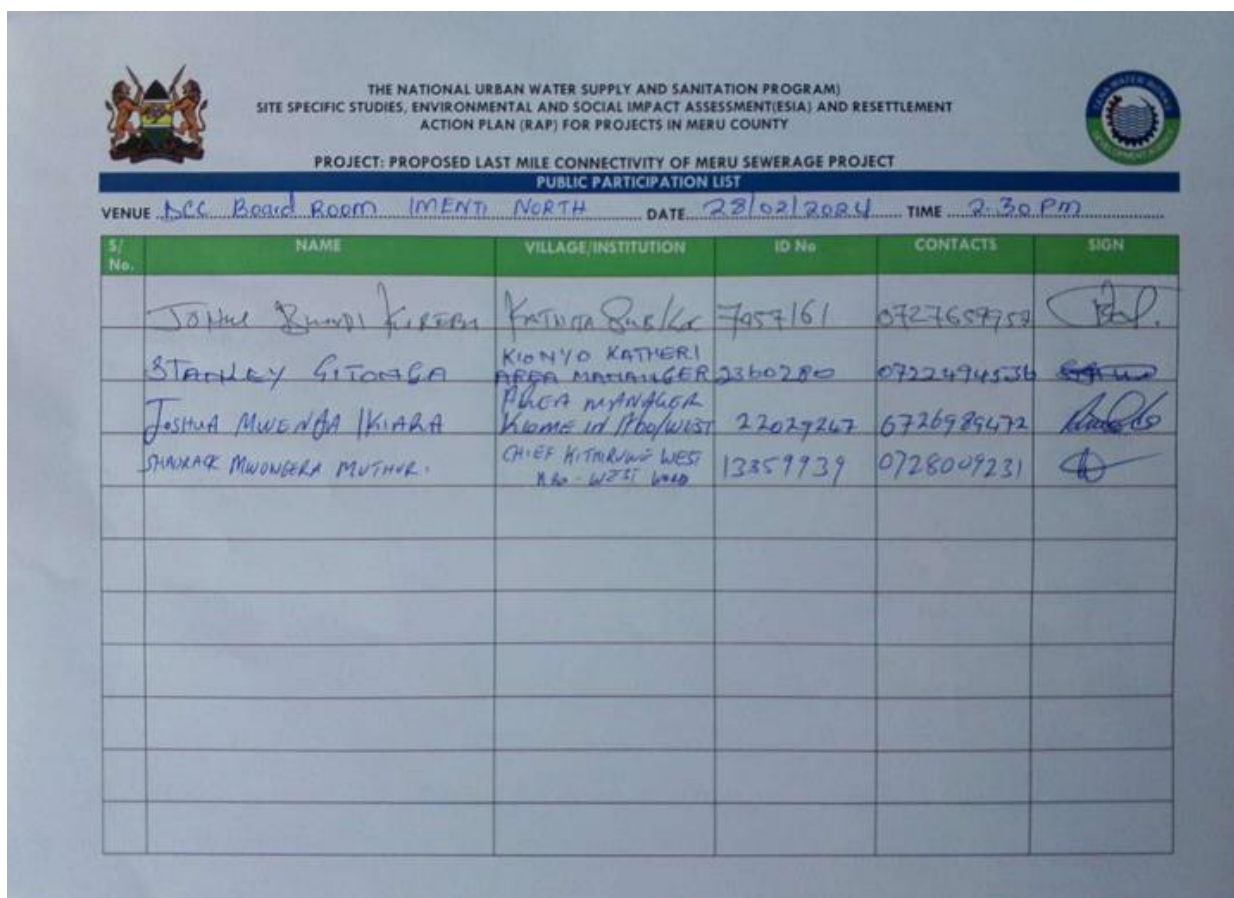 THE NATIONAL URBAN WATER SUPPLY AND SANITATION PROGRAM)
SITE SPECIFIC STUDIES, ENVIRONMENTAL AND SOCIAL IMPACT ASSESSMENT(ESIA) AND RESETTLEMENT
ACTION PLAN (RAP) FOR PROJECTS IN MERU COUNTY
PROJECT: PROPOSED LAST MILE CONNECTIVITY OF MERU SEWERAGE PROJECT
PUBLIC PARTICIPATION LIST
VENUE DCC Board Room IMENTI NORTH DATE 28/02/2024 TIME 2.30 PM
S/ No. NAME VILLAGE/INSTITUTION ID No CONTACTS SIGN
7057161 0727659959
STANLEY GITONGA KIONYO KATHERI
AREA MANAGER 2360280 0722494536
JOSHUA MWENDA IKIARA AREA MANAGER
22029247 0726989472
MWONGERA CHIEF WEST
WEST WARD 13359939 0728009231